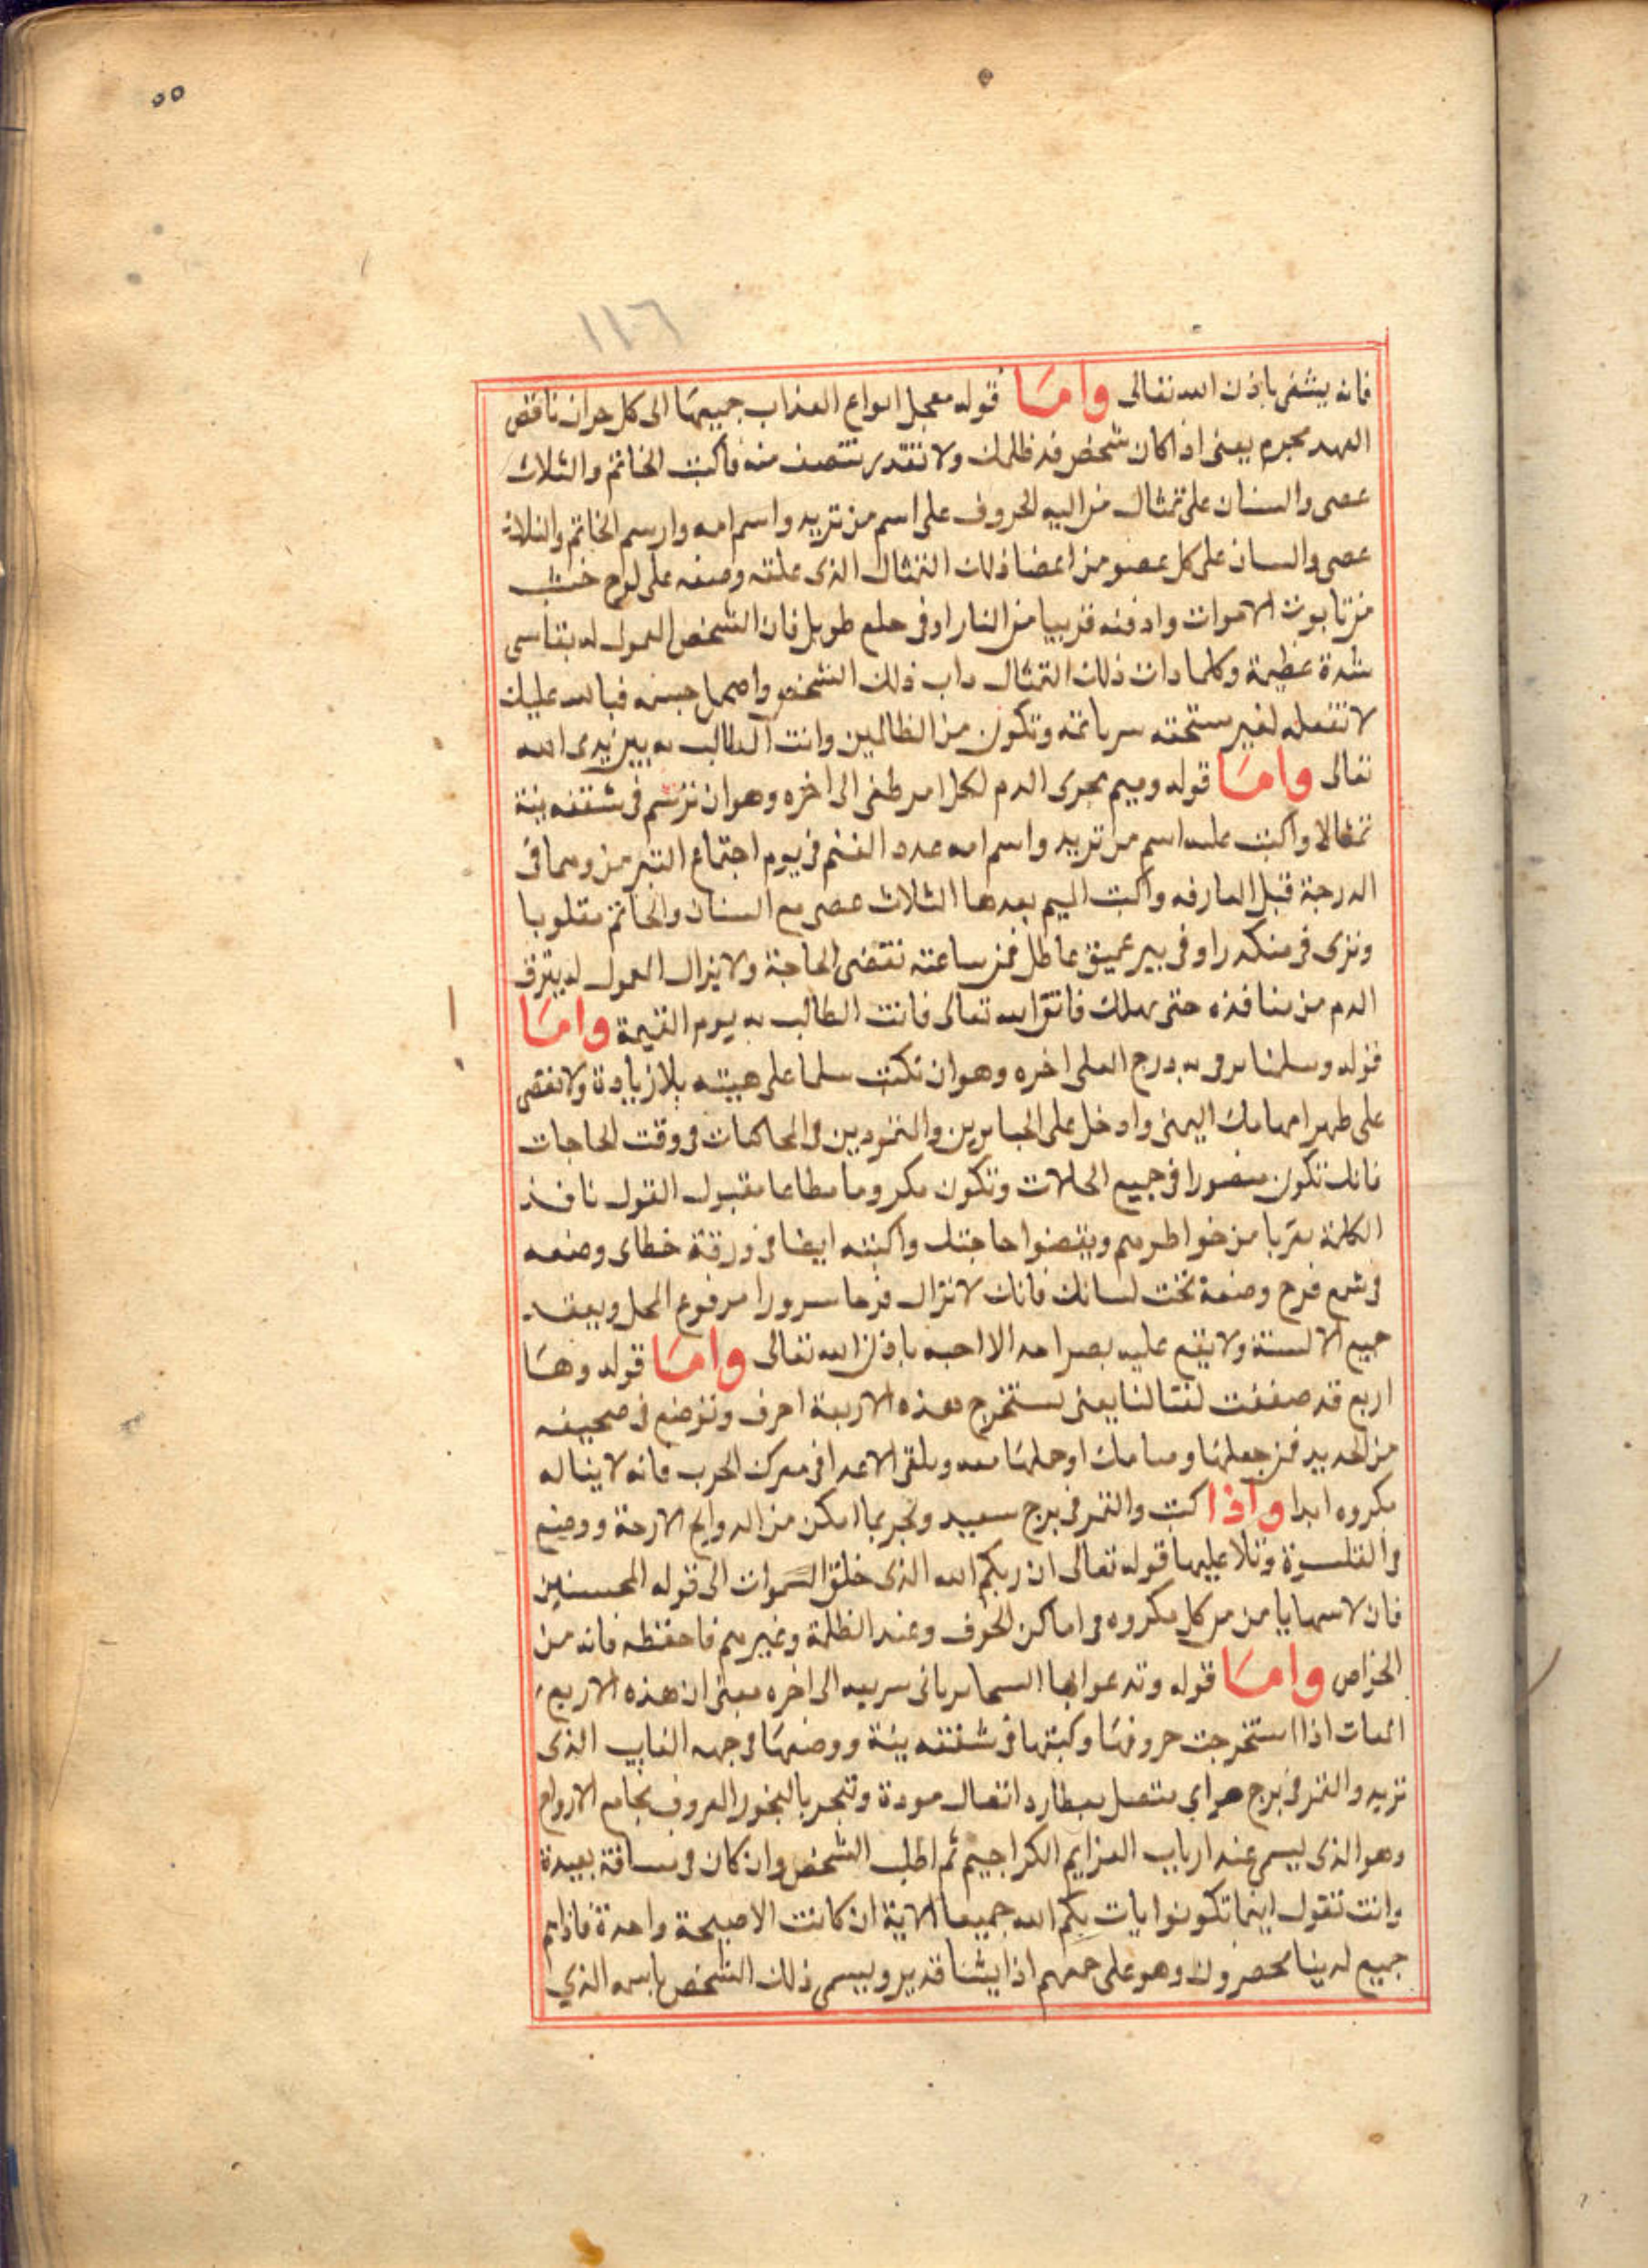 ٥٥
١١٦
فانه يشفى باذن الله تعالى واما قوله معجل انواع العذاب جميعها الى كل خوان ناقض
العهد مجرم يعنى اذا كان شخص قد ظلمك ولا تقدر تنتصف منه فاكتب الخاتم والثلاث
عصى والسنان على تمثال من اليه الحروف على اسم من تريد واسم امه وارسم الخاتم والثلاثة
عصى والسنان على كل عضو من اعضا ذلك التمثال الذى علقته وضعه على لوح خشب
من تابوت الاموات وادفنه قريبا من النار او فى طويل فان الشخص المعمول له يقاسى
شدة عظيمة وكلما دات ذلك التمثال داب ذلك الشخص جسمه فبالله عليك
لا تفعله لغير مستحقه وتكون من الظالمين وانت المطالب به بين يدى الله
تعالى واما قوله وميم مجرى الدم لكل امر طغى الى اخره وهو ان ترسم فى شقفه نيئة
تمثالا واكتب عليه اسم من تريد واسم امه عدد الغنم فى يوم اجتماع القمر من وهما فى
الدرجة قبل المفارقه واكتب الميم بعدها الثلاث عصى مع السنان والخاتم مقلوبا
وترى فى منكدر او فى بير عميق عاطل فمن ساعته تقضى الحاجة ولا يزال المعمول له ينزف
الدم من منافذه حتى يهلك فاتق الله تعالى فانت المطالب به يوم القيمة واما
قوله وسلما يرقى به درج العلى اخره وهو ان تكتب سلما على هيئته بلا زيادة ولا نقص
على ظهر ابهامك اليمنى وادخل على الجبابرين والمتمردين فى المحاكمات فى وقت الحاجات
فانك تكون منصورا فى جميع الحالات وتكون مكروما مطاعا مقبول القول نافذ
الكلمة من خواطرهم ويقضوا حاجتك واكتبه ايضا فى ورقة خطاى وضعه
فى شمع فرح وضعه تحت لسانك فانك لا تزال فرحا مسرورا مرفوع المحل ويعقد
جميع الالسنة ولا يقع عليه بصر احد الا احبه باذن الله تعالى واما قوله وها
اربع قد صففت لقتالنا يعنى تستخرج هذه الاربعة احرف وتوضع فى صحيفه
من الحديد فمن جعلها او حملها معه ويلقى الاعدا فى معرك الحرب فانه لا يناله
مكروه ابدا واذا كتب والقمر فى برج سعيد وبخر بما امكن من الروايح الارجة ووضع
فى القلنسوة وتلا عليها قوله تعالى ان ربكم الله الذى خلق السموات الى قوله المحسنين
فان لابسها يامن من كل مكروه فى اماكن الخوف وعند الظلمة وغيرهم فاحفظه فانه من
الخواص واما قوله وتدعو ابها السما الى اخره معنى ان هذه الاربع
الفات اذا استخرجت حروفها وكتبتها فى شقفه نيئة ووضعها فى جهه الغايب الذى
تريد والقمر فى برج هواى متصل بعطارد اتصال مودة وتبخر بالبخور المعروف بجامع الارواح
وهو الذى يسمى عند ارباب العزايم الكراجيم ثم اطلب الشخص وان كان فى مسافة بعيدة
وانت تقول اينما تكونوا يات بكم الله جميعا الاية ان كانت الا صيحة واحدة فاذا هم
جميع لدينا محضرون وهو على جمعهم اذا يشا قدير ويسمى ذلك الشخص باسمه الذي